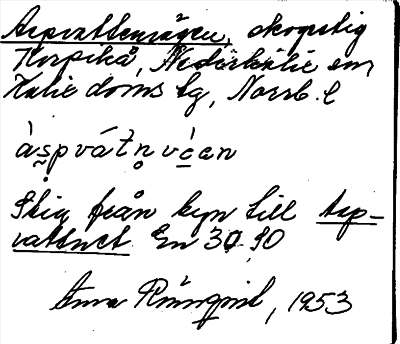 Aspvattenvägen, skogstig
Korpikå, Nederkalix sn
Kalix doms lg, Norrb. l
àspvátnvägen
Stig från byn till Asp-
vattnet En 30 90
Anna Rönnqvist, 1953